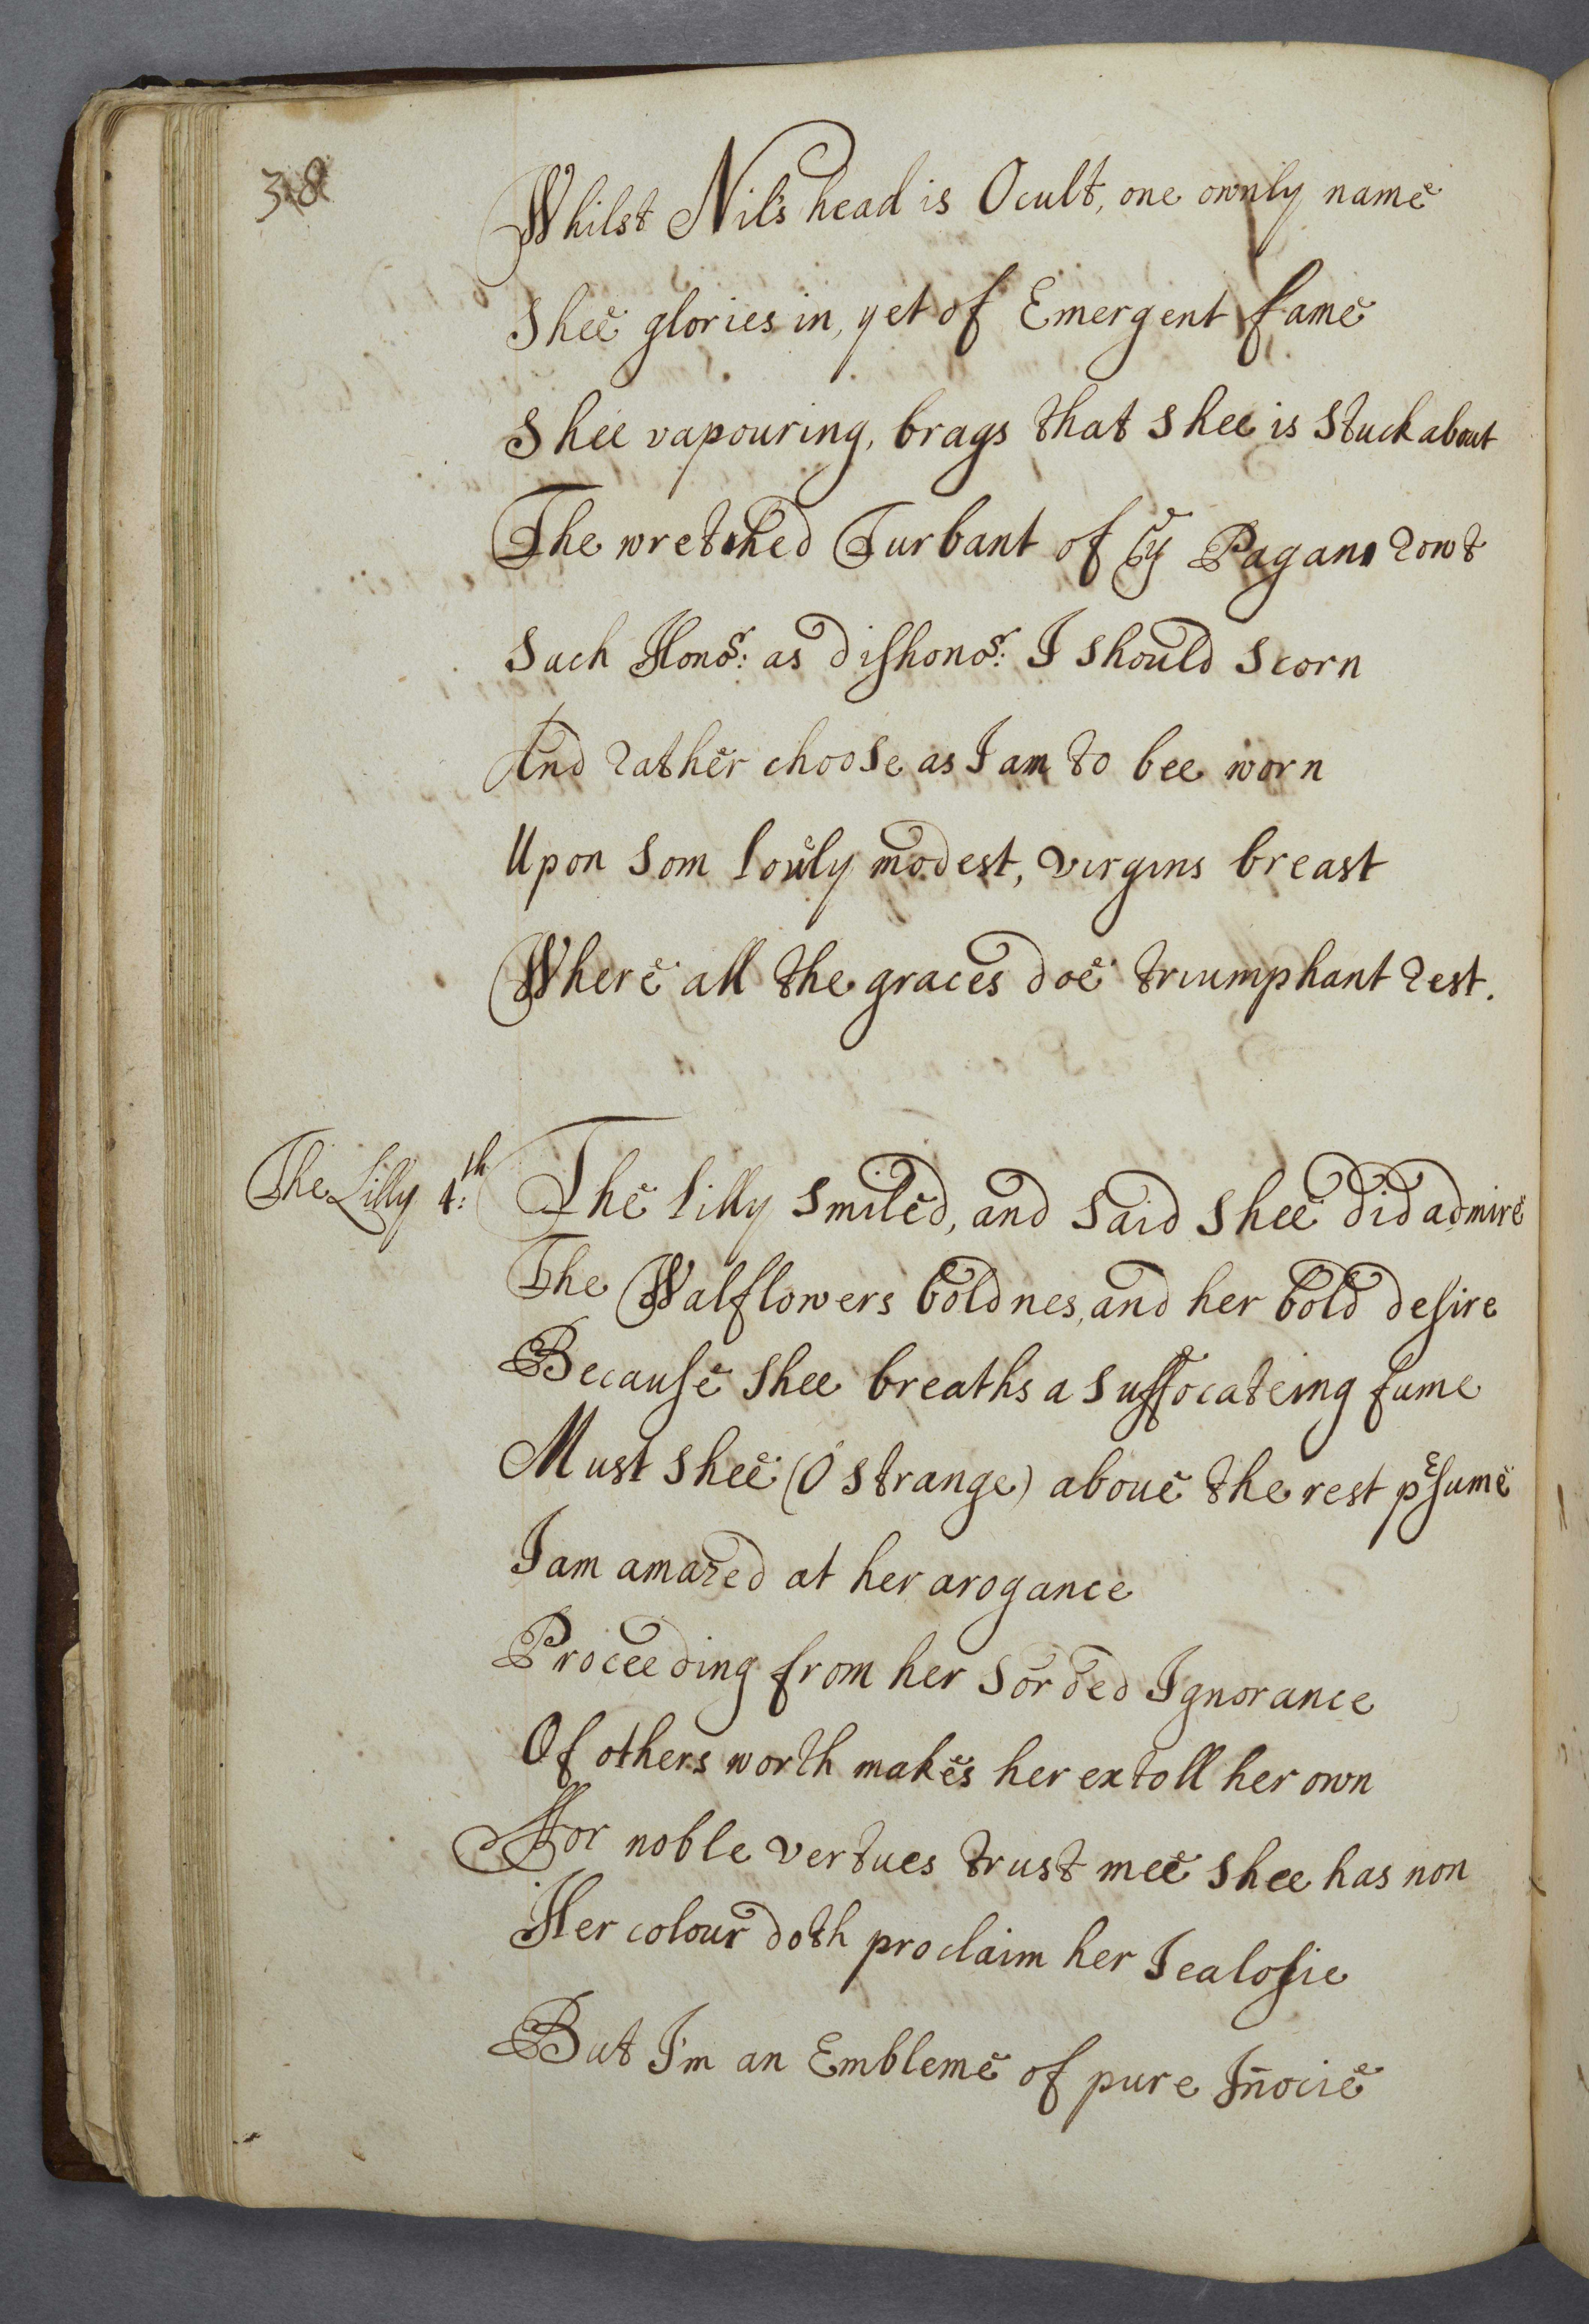 38
Whilst Nil's head is Ocult, one ownly name
Shee glories in, yet of Emergent fame
Shee vapouring, brags that Shee is Stuck about
The wretched Turbant of yͤ Pagan Rowt
Such Honoʳ: as dishonoʳ: I should Scorn
And Rather choose as I am to bee worn
Upon Som louely modest, virgins breast
Where all the graces doe triumphant Rest.
The Lilly 4th:
The lilly Smiled, and Said Shee did admire
The Walflowers boldnes, and her bold desire
Because Shee breaths a Suffocateing fume
Must Shee (O Strange) aboue the rest pͤsume
I am amazed at her arogance
Proceeding from her Sorded Ignorance
Of others worth makes her extoll her own
ffor noble vertues trust mee Shee has non
Her colour doth proclaim her Jealosie
But I'm an Embleme of pure In̄ocie